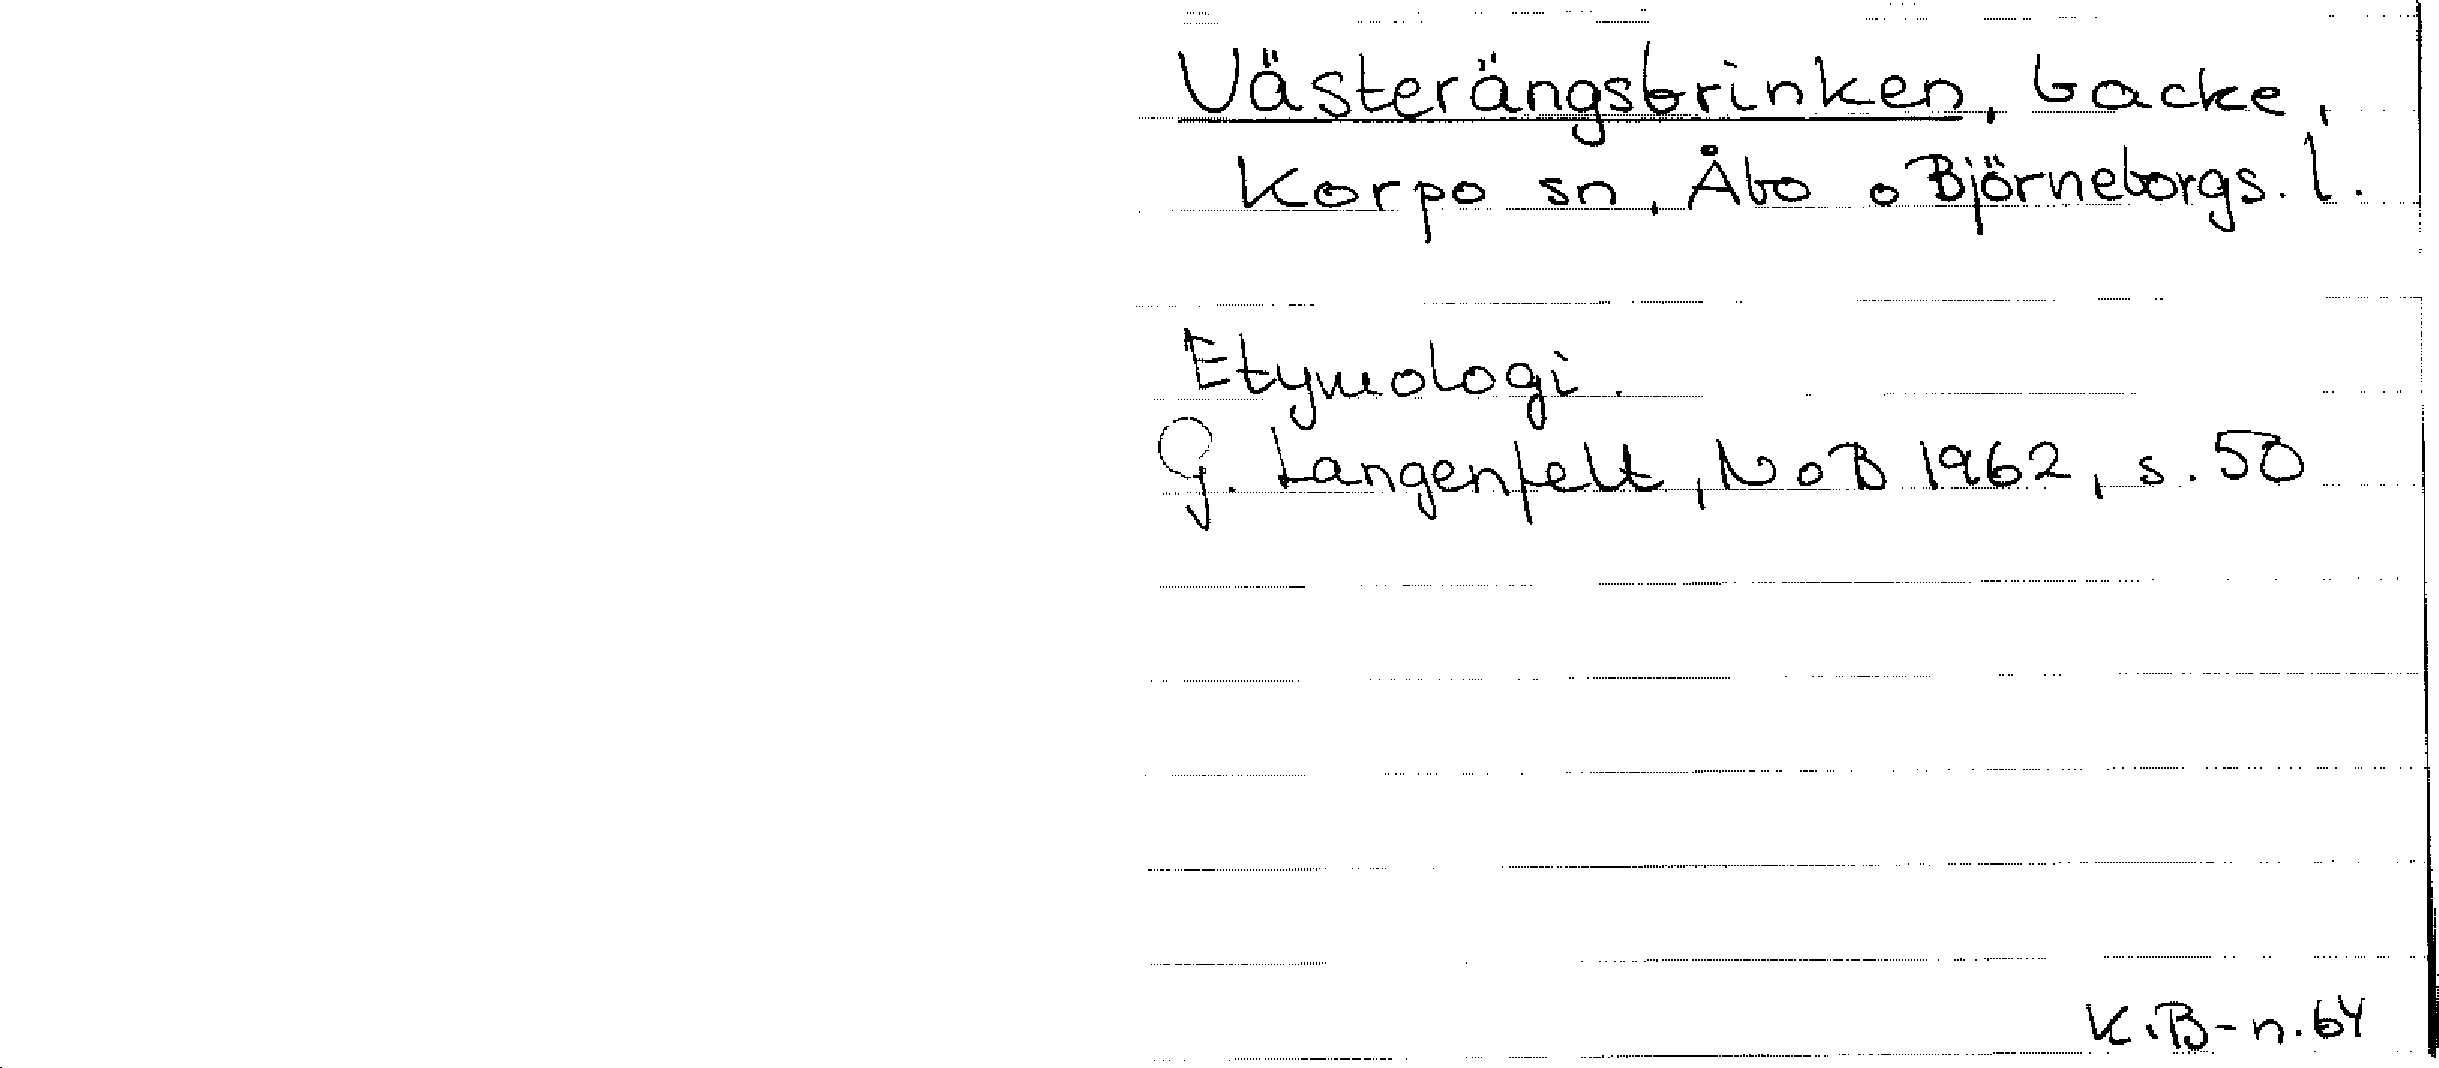 Västerängsbrinken, backe,
Korpo sn, Åbo o Björneborgs. l.
Etymologi.
G. Langenfelt, NoB 1962, s. 50
K.B-n.64